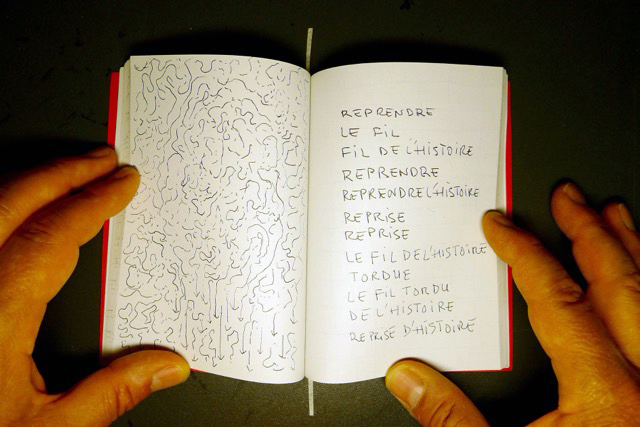 REPRENDRE
LE FIL
FIL DE L'HISTOIRE
REPRENDRE
REPRENDRE L'HISTOIRE
REPRISE
REPRISE
LE FIL DE L'HISTOIRE
TORDUE
LE FIL TORDU
DE L'HISTOIRE
REPRISE D'HISTOIRE